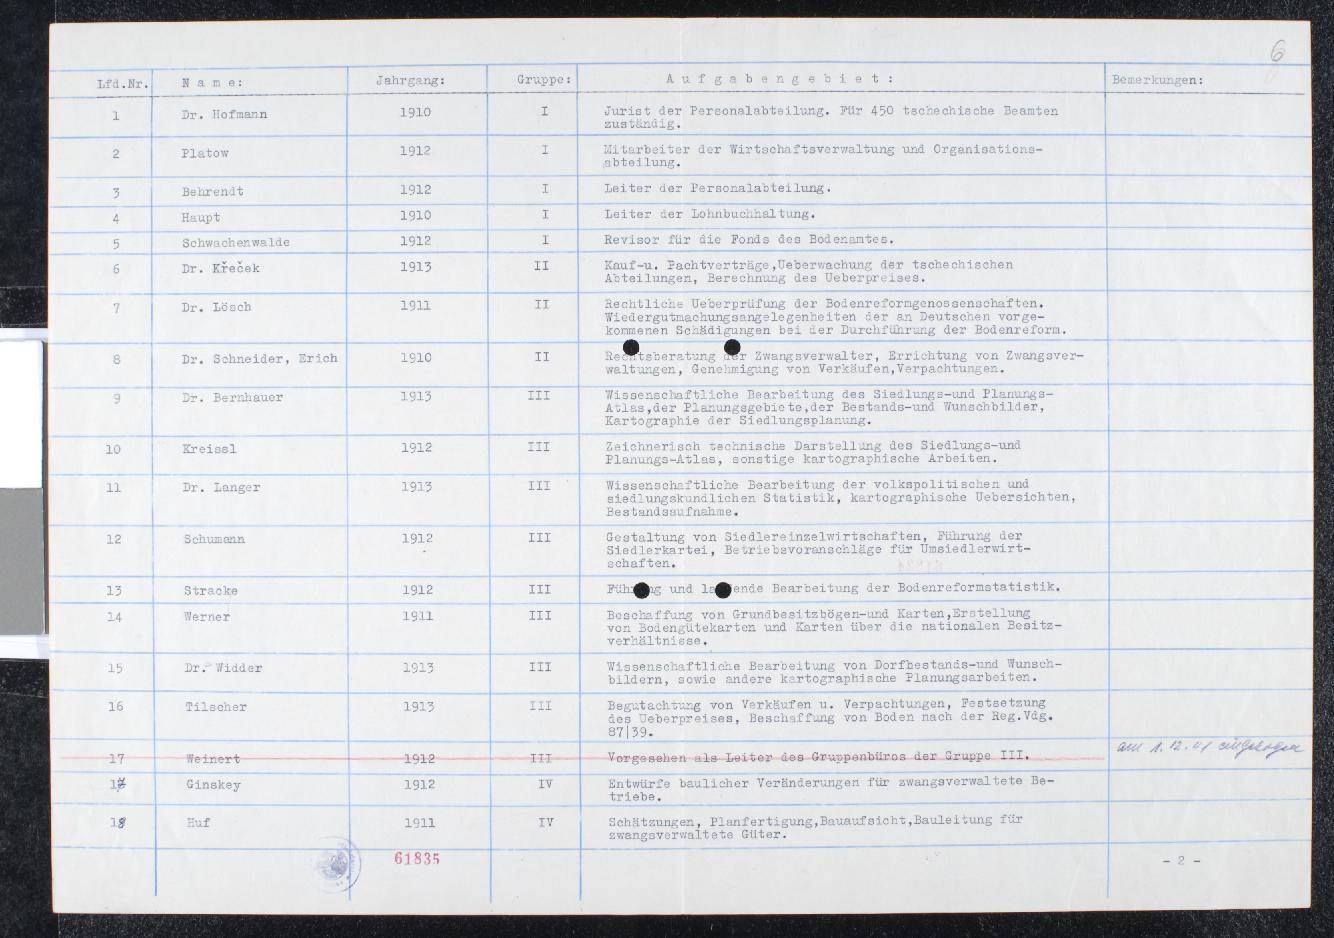 6
Lfd.Nr. N a m e: Jahrgang: Gruppe: A u f g a b e n g e b i e t : Bemerkungen:
1 Dr. Hofmann 1910 I Jurist der Personalabteilung. Für 450 tschechische Beamten
zuständig.
2 Platow 1912 I Mitarbeiter der Wirtschaftsverwaltung und Organisations-
abteilung.
3 Behrendt 1912 I Leiter der Personalabteilung.
4 Haupt 1910 I Leiter der Lohnbuchhaltung.
5 Schwachenwalde 1912 I Revisor für die Fonds des Bodenamtes.
6 Dr. Křeček 1913 II Kauf-u. Pachtverträge,Ueberwachung der tschechischen
Abteilungen, Berechnung des Ueberpreises.
7 Dr. Lösch 1911 II Rechtliche Ueberprüfung der Bodenreformgenossenschaften.
Wiedergutmachungsangelegenheiten der an Deutschen vorge-
kommenen Schädigungen bei der Durchführung der Bodenreform.
8 Dr. Schneider, Erich 1910 II Rechtsberatung der Zwangsverwalter, Errichtung von Zwangsver-
waltungen, Genehmigung von Verkäufen,Verpachtungen.
9 Dr. Bernhauer 1913 III Wissenschaftliche Bearbeitung des Siedlungs-und Planungs-
Atlas,der Planungsgebiete,der Bestands-und Wunschbilder,
Kartographie der Siedlungsplanung.
10 Kreissl 1912 III Zeichnerisch technische Darstellung des Siedlungs-und
Planungs-Atlas, sonstige kartographische Arbeiten.
11 Dr. Langer 1913 III Wissenschaftliche Bearbeitung der volkspolitischen und
siedlungskundlichen Statistik, kartographische Uebersichten,
Bestandsaufnahme.
12 Schumann 1912 III Gestaltung von Siedlereinzelwirtschaften, Führung der
Siedlerkartei, Betriebsvoranschläge für Umsiedlerwirt-
schaften.
13 Stracke 1912 III Führung und laufende Bearbeitung der Bodenreformstatistik.
14 Werner 1911 III Beschaffung von Grundbesitzbögen-und Karten,Erstellung
von Bodengütekarten und Karten über die nationalen Besitz-
verhältnisse.
15 Dr. Widder 1913 III Wissenschaftliche Bearbeitung von Dorfbestands-und Wunsch-
bildern, sowie andere kartographische Planungsarbeiten.
16 Tilscher 1913 III Begutachtung von Verkäufen u. Verpachtungen, Festsetzung
des Ueberpreises, Beschaffung von Boden nach der Reg.Vdg.
87|39.
17 Weinert 1912 III Vorgesehen als Leiter des Gruppenbüros der Gruppe III. am 1.12.41 eingezogen
17 Ginskey 1912 IV Entwürfe baulicher Veränderungen für zwangsverwaltete Be-
triebe.
18 Huf 1911 IV Schätzungen, Planfertigung,Bauaufsicht,Bauleitung für
zwangsverwaltete Güter.
61835 - 2 -